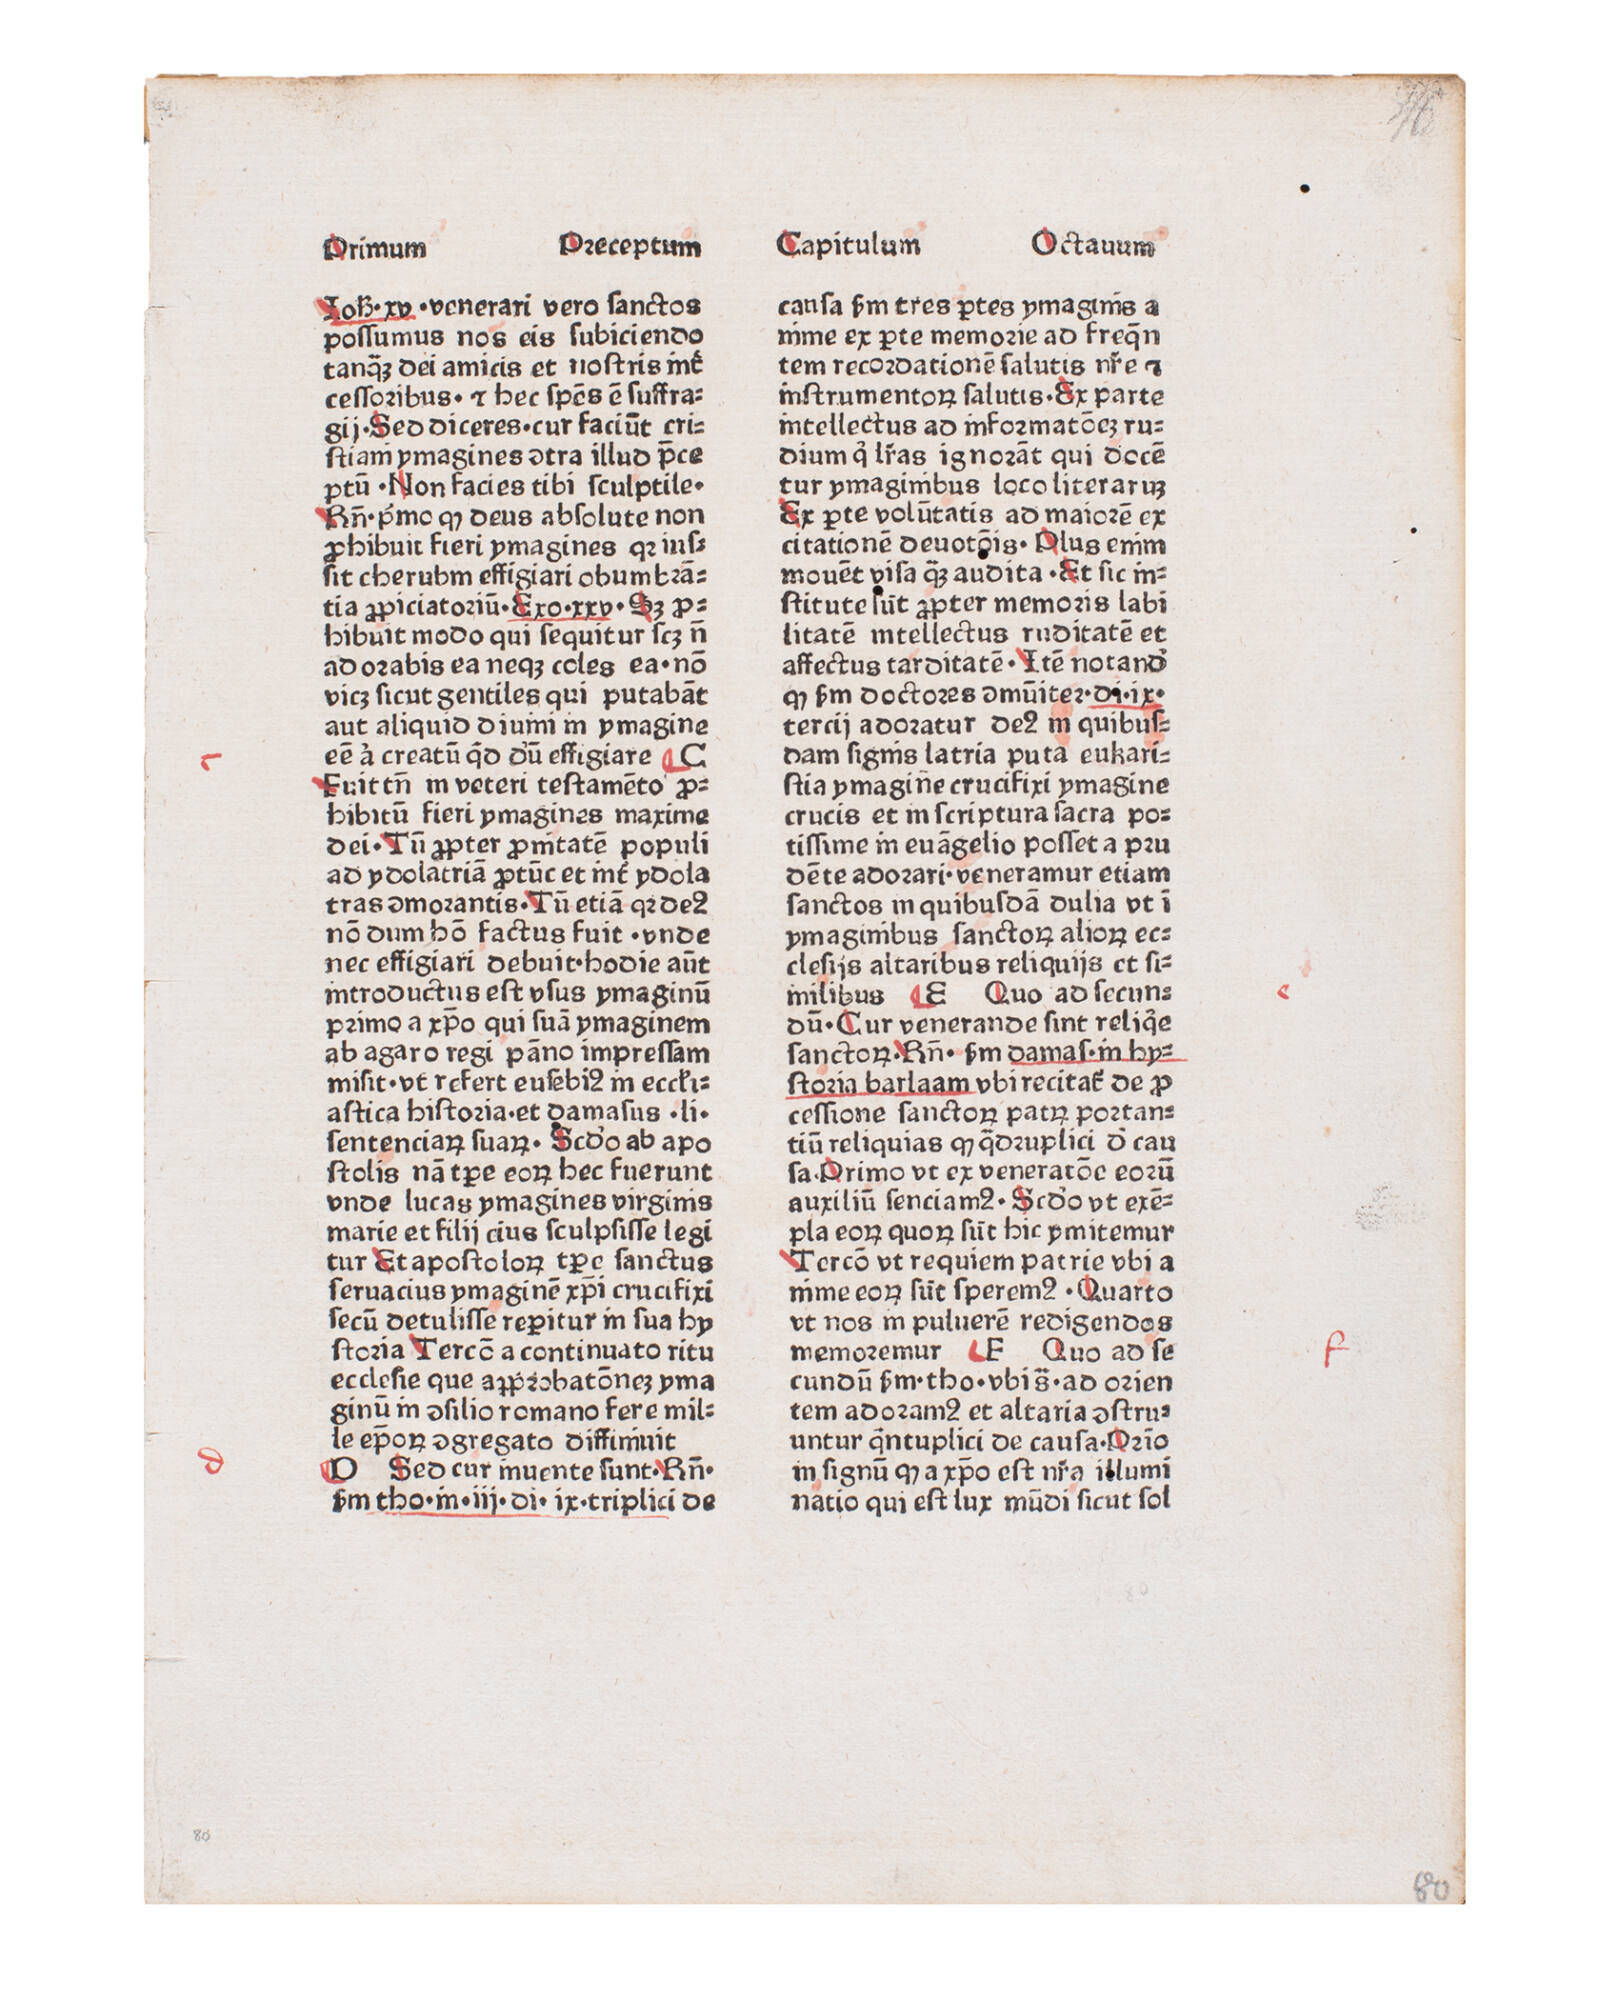 46
Primum Preceptum
Ioh̄·xv·venerari vero sanctos
possumus nos eis subiciendo
tanq̄ꝫ dei amicis et nostris int̄
cessoribus· ⁊ hec spēs ē suffra-
gij·Sed diceres·cur faciūt cri-
stiani ymagines ↄtra illud p̄ce
ptū ·Non facies tibi sculptile·
Rn̄·pͥmo ꝙ deus absolute non
ꝓhibuit fieri ymagines qꝛ ius-
sit cherubin effigiari obumbrā-
tia ꝓpiciatoriū·Exo·xxv· Sꝫ ꝓ-
hibuit modo qui sequitur scꝫ n̄
adorabis ea neqꝫ coles ea·nō
vicꝫ sicut gentiles qui putabāt
aut aliquid diuini in ymagine
eē ꝉ creatū qd̄ dʼū effigiare C
Fuit tn̄ in veteri testamēto ꝓ-
hibitū fieri ymagines maxime
dei·Tū ꝓpter ꝓnitatē populi
ad ydolatriā ꝓtūc et int̄ ydola
tras ↄmorantis·Tū etiā qꝛ deꝰ
nō dum hō factus fuit ·vnde
nec effigiari debuit·hodie aūt
introductus est vsus ymaginū
primo a xp̄o qui suā ymaginem
ab agaro regi pāno impressam
misit·vt refert eusebiꝰ in eccl̄i-
astica historia·et damasus ·li·
sentenciaꝝ suaꝝ· Scdʼo ab apo
stolis nā tꝑe eoꝝ hec fuerunt
vnde lucas ymagines virginis
marie et filij eius sculpsisse legi
tur Et apostoloꝝ tꝑe sanctus
seruacius ymaginē xp̄i crucifixi
secū detulisse reꝑitur in sua hy
storia Tercō a continuato ritu
ecclesie que apꝓbatōneꝫ yma
ginū in ↄsilio romano fere mil-
le ep̄oꝝ ↄgregato diffiniuit
D Sed cur inuente sunt·Rn̄·
ẜm tho·in·iij·di· ix·triplici de
Capitulum Octauum
causa ẜm tres ꝑtes ymaginis a
nime ex ꝑte memorie ad freq̄n
tem recordationē salutis nr̄e ⁊
instrumentoꝝ salutis·Ex parte
intellectus ad informatōeꝫ ru-
dium qͥ lr̄as ignorāt qui docē
tur ymaginibus loco literaruꝫ
Ex ꝑte volūtatis ad maiorē ex
citationē deuotōis· Plus enim
mouēt visa q̄ꝫ audita ·Et sic in-
stitute sūt ꝓpter memoris labi
litatē intellectus ruditatē et
affectus tarditatē· Itē notandʼ
ꝙ ẜm doctores ↄmūiter·di·ix·
tercij adoratur deꝰ in quibus-
dam signis latria puta eukari-
stia ymagīne crucifixi ymagine
crucis et in scriptura sacra po-
tissime in euāgelio posset a pru
dēte adorari·veneramur etiam
sanctos in quibusdā dulia vt ī
ymaginibus sanctoꝝ alioꝝ ec-
clesijs altaribus reliquijs et si-
milibus E Quo ad secun-
dū·Cur venerande sint reliqͥe
sanctoꝝ·Rn̄· ẜm damas·in hy-
storia barlaam vbi recitat̄ de ꝓ
cessione sanctoꝝ patꝝ portan-
tiū reliquias ꝙ q̄druplici dʼ cau
sa·Primo vt ex veneratōe eorū
auxiliū senciamꝰ· Scdʼo vt exē-
pla eoꝝ quoꝝ sūt hic ymitemur
Tercō vt requiem patrie vbi a
nime eoꝝ sūt speremꝰ ·Quarto
vt nos in puluerē redigendos
memoremur F Quo ad se
cundū ẜm·tho·vbi s̄·ad orien
tem adoramꝰ et altaria ↄstru-
untur qͥntuplici de causa·Prīo
in signū ꝙ a xp̄o est nr̄a illumi
natio qui est lux mūdi sicut sol
c
d
e
f
80
80
80